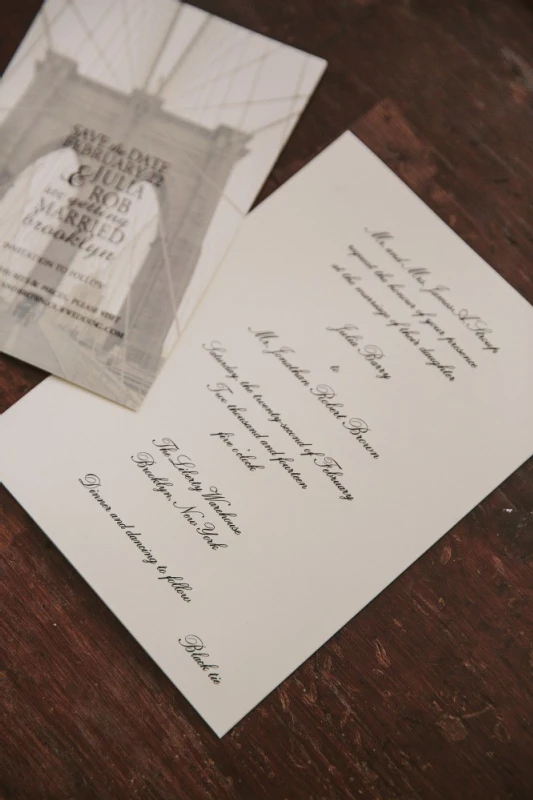 SAVE the DATE
FEBRUARY 22
JULIA
& ROB
are getting
MARRIED
brooklyn
INVITATION TO FOLLOW
PLEASE VISIT
Mr. and Mrs. James A Stroup
request the honour of your presence
at the marriage of their daughter
Julie Barry
to
Mr. Jonathan Robert Brown
Saturday, the twenty-second of February
Two thousand and fourteen
five o'clock
The Liberty Warehouse
Brooklyn, New York
Dinner and dancing to follow
Black tie